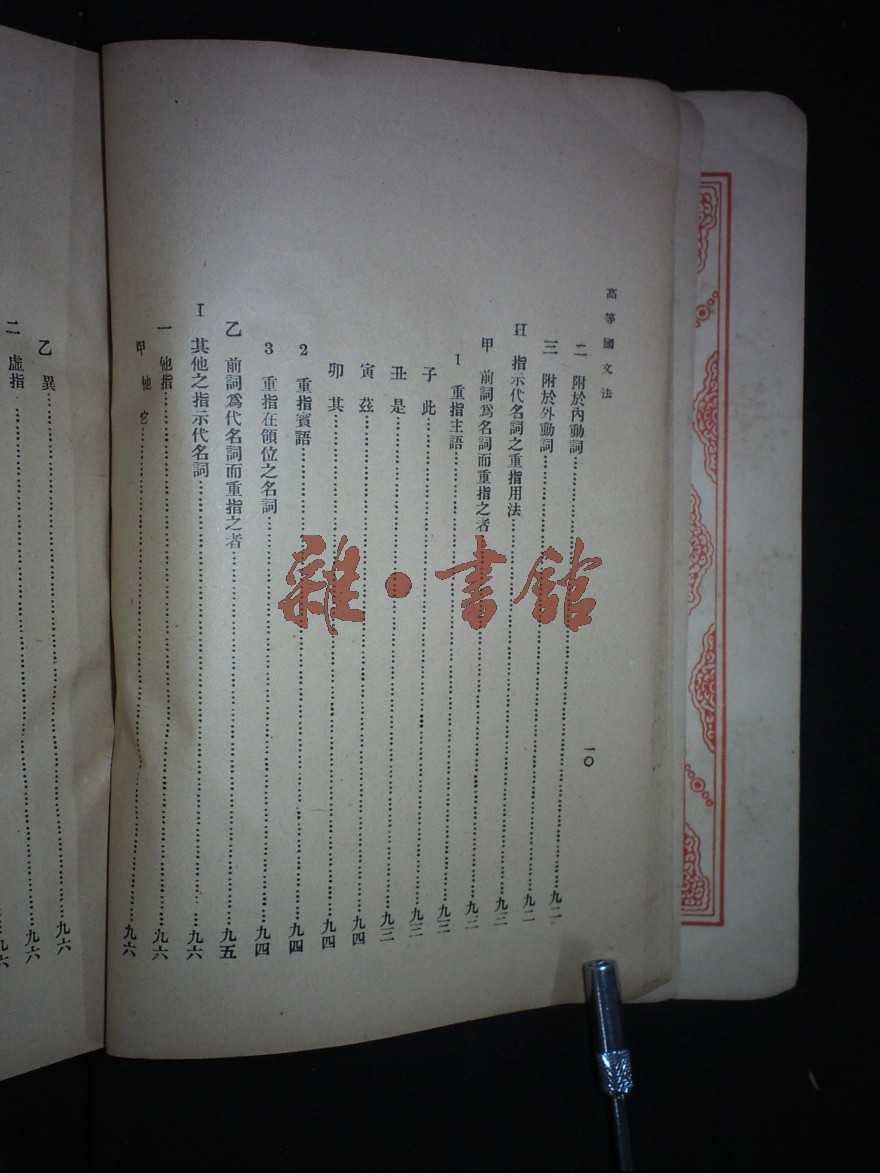 高等國文法
一〇
二 附於內動詞……九二
三 附於外動詞……九二
H 指示代名詞之重指用法……九三
甲 前詞爲名詞而重指之者……九三
1 重指主語……九三
子 此……九三
丑 是……九三
寅 茲……九四
卯 其……九四
2 重指賓語……九四
3 重指在領位之名詞……九四
乙 前詞爲代名詞而重指之者……九五
I 其他之指示代名詞……九六
一 他指……九六
甲 他 它……九六
乙 異……九六
二 虛指……九六
九六
雜·書館